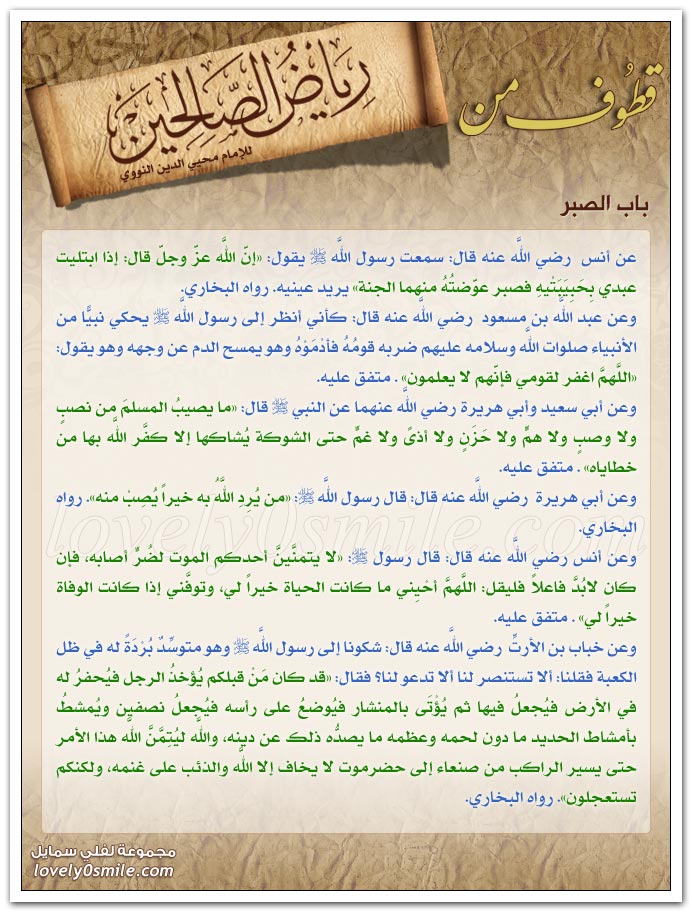 قطوف من
رياض الصالحين
للإمام محيي الدين النووي
باب الصبر
عن أنس رضي اللَّه عنه قال: سمعت رسول اللَّه ﷺ يقول: «إنّ اللَّه عزّ وجلّ قال: إذا ابتليت
عبدي بِحَبِيبَتْيهِ فصبر عوّضتُهُ منهما الجنة» يريد عينيه. رواه البخاري.
وعن عبد اللَّه بن مسعود رضي اللَّه عنه قال: كأني أنظر إلى رسول اللَّه ﷺ يحكي نبيًّا من
الأنبياء صلوات اللَّه وسلامه عليهم ضربه قومُهُ فأدْمَوْهُ وهو يمسح الدم عن وجهه وهو يقول:
«اللَّهمَّ اغفر لقومي فإنّهم لا يعلمون» . متفق عليه.
وعن أبي سعيد وأبي هريرة رضي اللَّه عنهما عن النبي ﷺ قال: «ما يصيبُ المسلمَ من نصبٍ
ولا وصبٍ ولا همٍّ ولا حَزَنٍ ولا أذىً ولا غمٍّ حتى الشوكة يُشاكها إلا كفَّر اللَّه بها من
خطاياه» . متفق عليه.
وعن أبي هريرة رضي اللَّه عنه قال: قال رسول اللَّه ﷺ: «من يُرِدِ اللَّهُ به خيراً يُصِبْ منه». رواه
البخاري.
وعن أنس رضي اللَّه عنه قال: قال رسول ﷺ: «لا يتمنَّينَّ أحدكم الموت لضُرٍّ أصابه، فإن
كان لابُدَّ فاعلاً فليقل: اللَّهمَّ أحْيِني ما كانت الحياة خيراً لي، وتوفَّني إذا كانت الوفاة
خيراً لي» . متفق عليه.
وعن خباب بن الأرتِّ رضي اللَّه عنه قال: شكونا إلى رسول اللَّه ﷺ وهو متوسِّدٌ بُرْدَةً له في ظل
الكعبة فقلنا: ألا تستنصر لنا ألا تدعو لنا؟ فقال: «قد كان مَنْ قبلكم يُؤخذُ الرجل فيُحفرُ له
في الأرض فيُجعلُ فيها ثم يُؤْتَى بالمنشار فيُوضعُ على رأسه فيُجعلُ نصفين ويُمشطُ
بأمشاط الحديد ما دون لحمه وعظمه ما يصدُّه ذلك عن دينه، واللَّه ليُتِمَّنَّ اللَّه هذا الأمر
حتى يسير الراكب من صنعاء إلى حضرموت لا يخاف إلا اللَّه والذئب على غنمه، ولكنكم
تستعجلون». رواه البخاري.
lovely0smile.com
مجموعة لفلي سمايل
lovely0smile.com